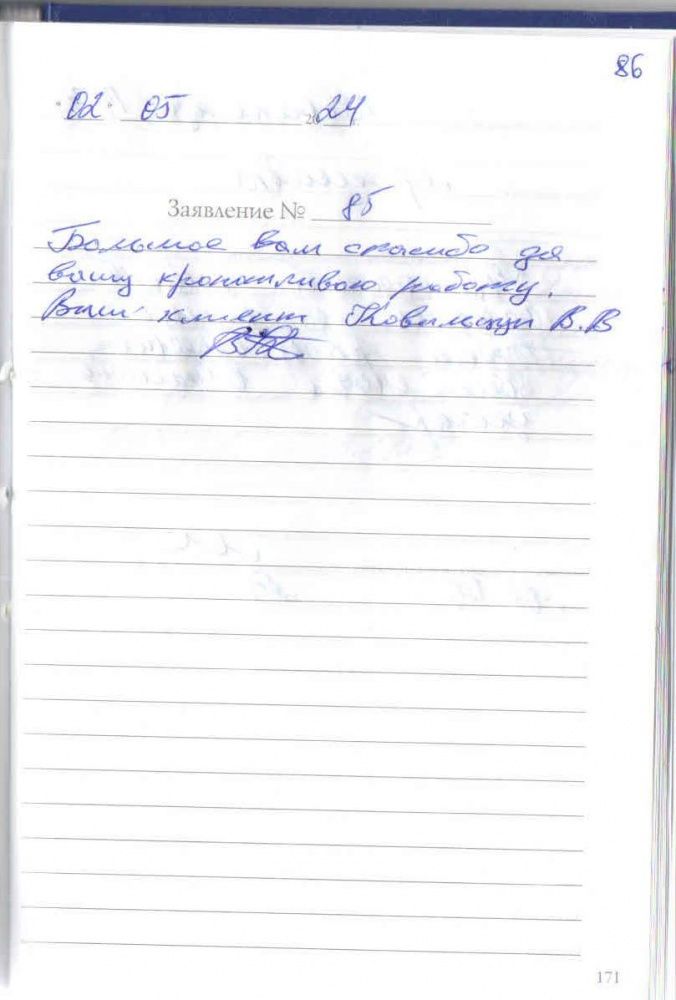 86
"02" 05 2024
Заявление № 85
Большое вам спасибо за
вашу кропотливою работу.
Ваш клиент В.В
171